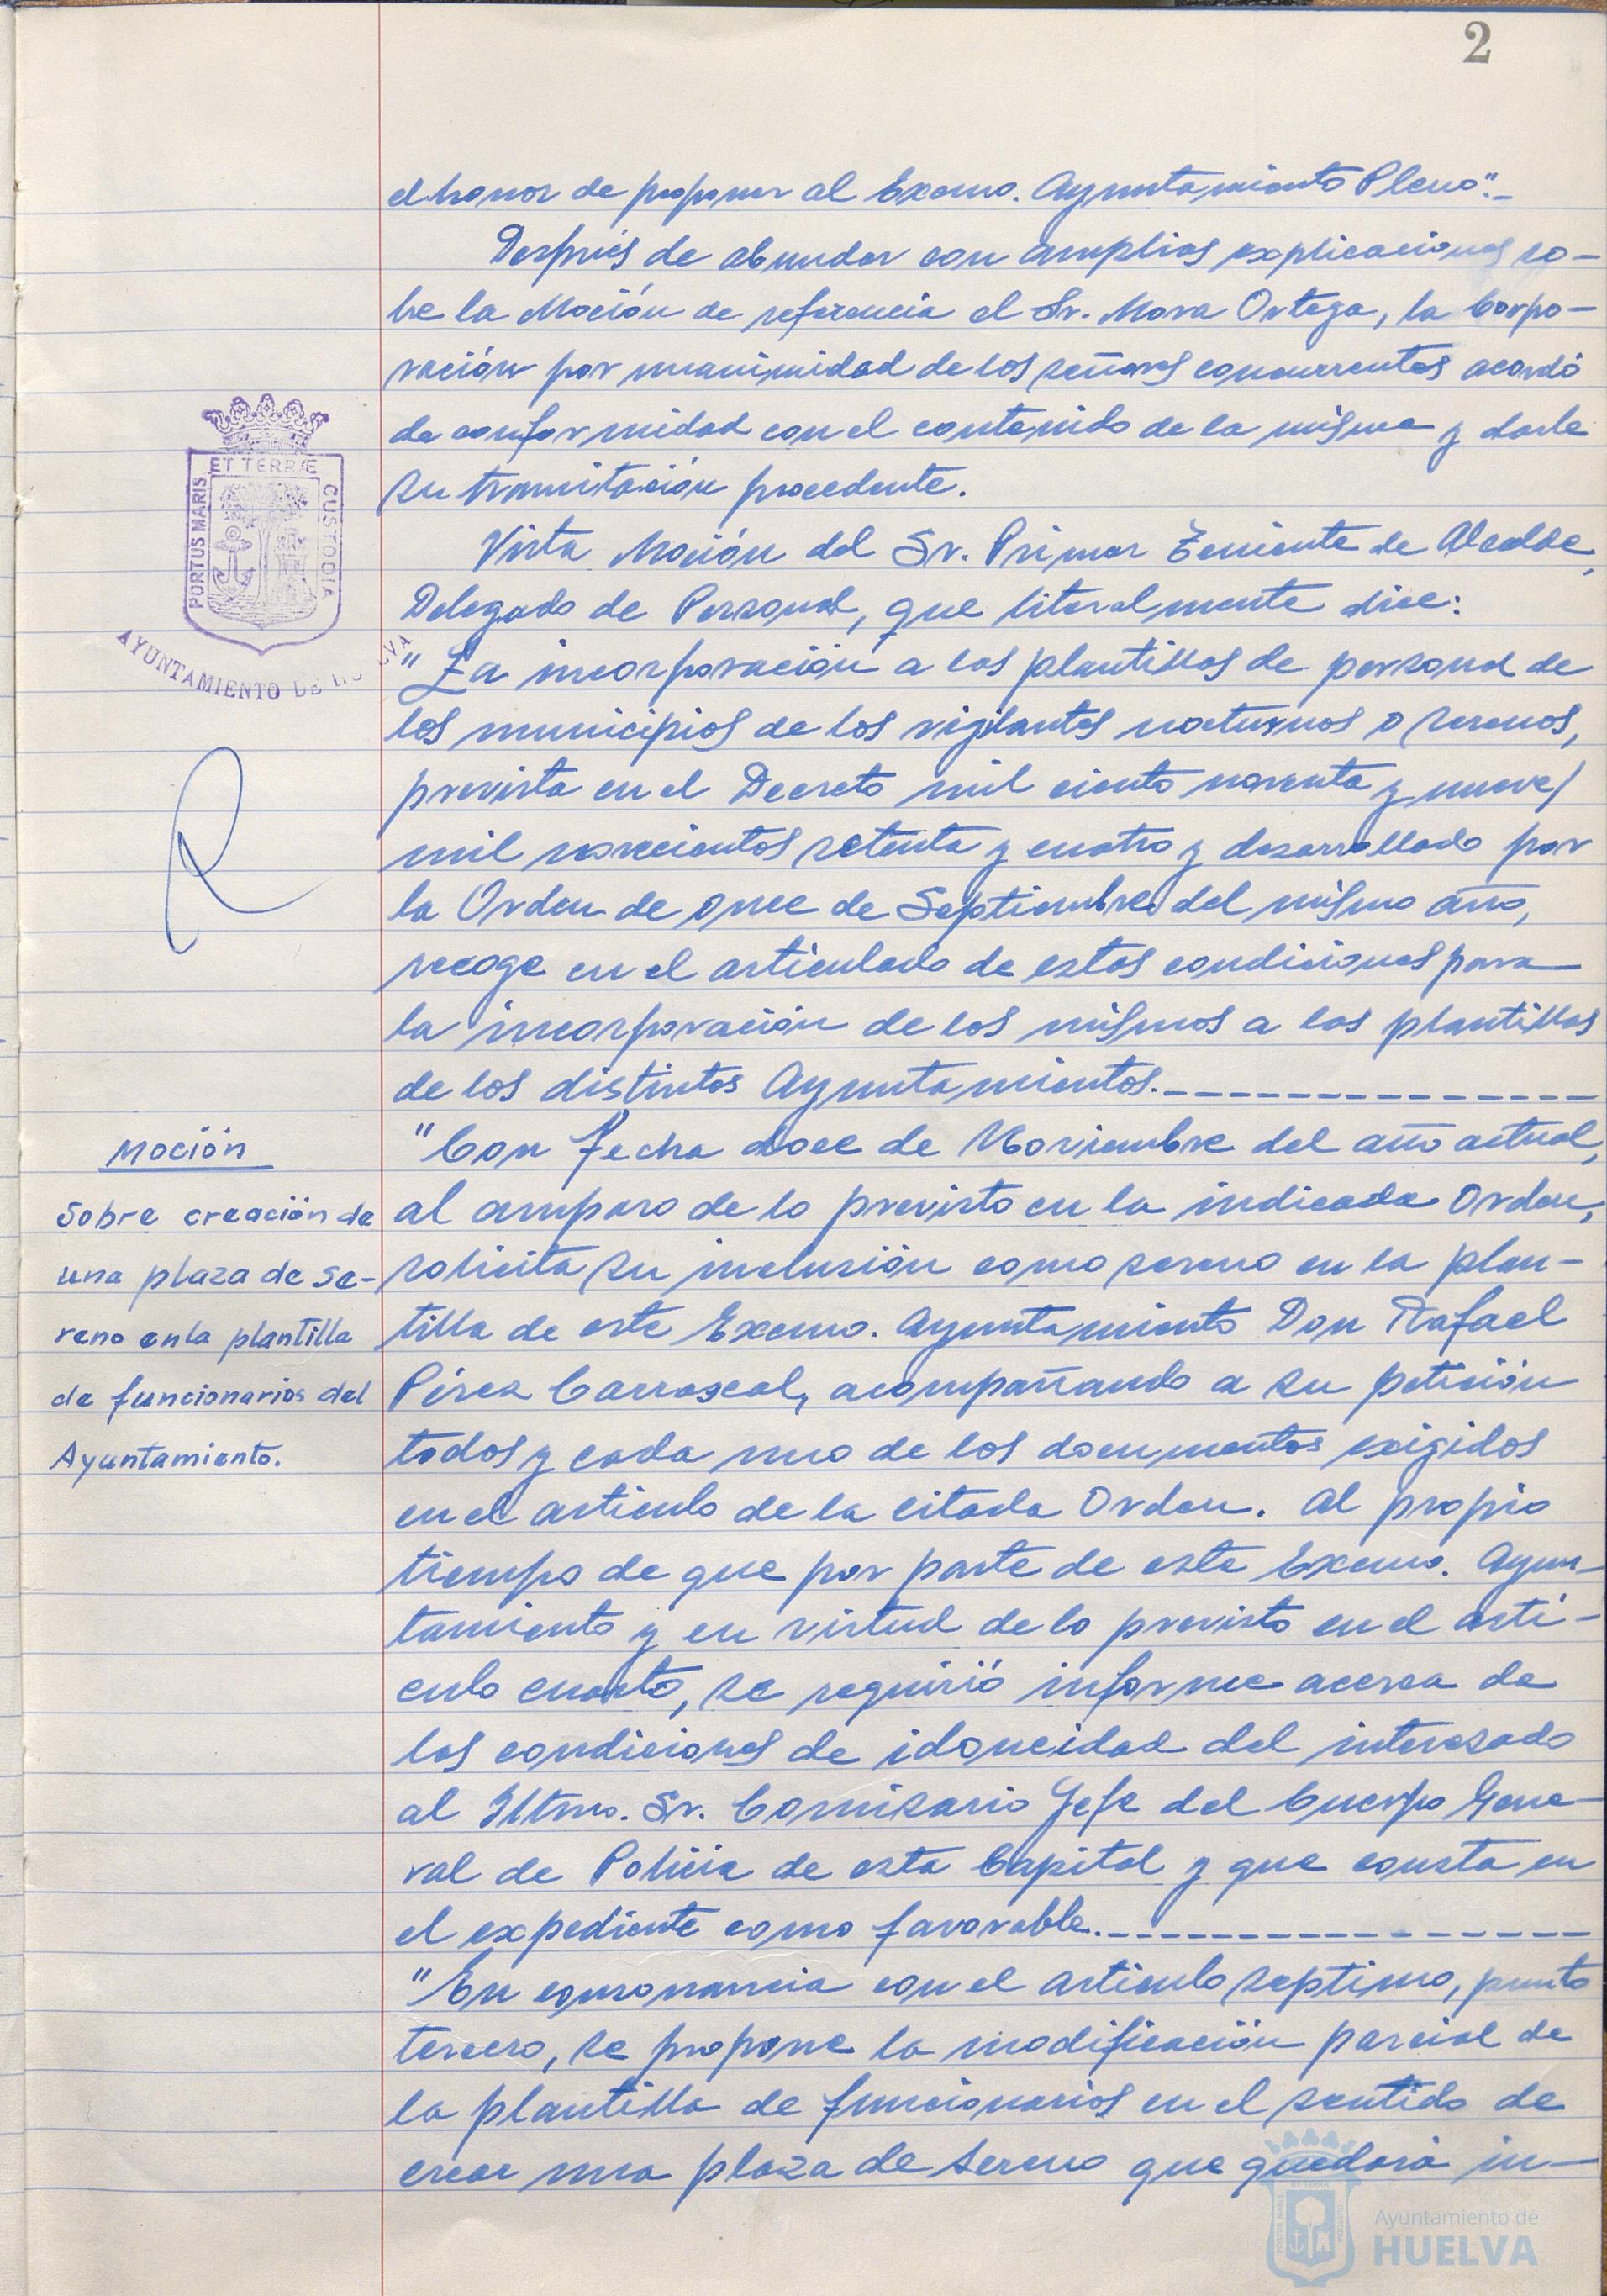 2
el honor de proponer al Excmo. Ayuntamiento Pleno".-
Después de abundar con amplias explicaciones so-
bre la Moción de referencia el Sr. Mora Ortega, la Corpo-
ración por unanimidad de los señores concurrentes acordó
da conformidad con el contenido de la misma y darle
su tramitación procedente.
Vista Moción del Sr. Primer Teniente de Alcalde,
Delegado de Personal, que literalmente dice:
"La incorporación a las plantillas de personal de
los municipios de los vigilantes nocturnos o serenos,
prevista en el Decreto mil ciento noventa y nueve/
mil novecientos setenta y cuatro y desarrollado por
la Orden de once de Septiembre del mismo año,
recoge en el articulado de estas condiciones para
la incorporación de los mismos a las plantillas
de los distintos Ayuntamientos.---------------
"Con fecha doce de Noviembre del año actual,
al amparo de lo previsto en la indicada Orden,
solicita su inclusión como sereno en la plan-
tilla de este Excmo. Ayuntamiento Don Rafael
Pérez Carrascal, acompañando a su petición
todos y cada uno de los documentos exigidos
en el artículo de la citada Orden. Al propio
tiempo de que por parte de este Excmo. Ayun-
tamiento y en virtud de lo previsto en el artí-
culo cuarto, se requirió informe acerca de
las condiciones de idoneidad del interesado
al Iltmo. Sr. Comisario Jefe del Cuerpo Gene-
ral de Policía de esta Capital y que consta en
el expediente como favorable.---------------
"En consonancia con el artículo septimo, punto
tercero, se propone la modificación parcial de
la plantilla de funcionarios en el sentido de
crear una plaza de Sereno que quedará in-
PORTUS MARIS
ET TERRÆ
CUSTODIA
AYUNTAMIENTO DE HUELVA
Moción
Sobre creación de
una plaza de se-
reno en la plantilla
de funcionarios del
Ayuntamiento.
Ayuntamiento de
HUELVA